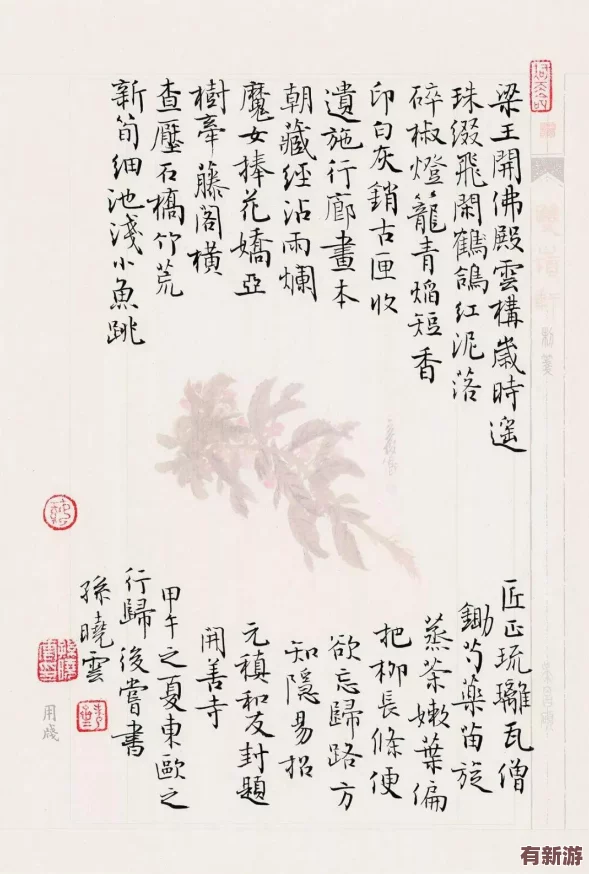 梁王開佛殿雲構歲時遙
珠綴飛閑鶴鴿紅泥落
碎椒燈籠青焰短香
印白灰銷古匣收
遺施行廊畫本
朝藏經沾雨爛
魔女捧花嬌亞
樹牽藤閣橫
查壓石橋竹荒
新筍細池淺小魚跳
匠正琉璃瓦僧
鋤芍藥苗旋
蒸茶嫩葉偏
把柳長條便
欲忘歸路方
知隱易招
元稹和友封題
開善寺
甲午之夏東歐之
行歸後嘗書
孫曉雲
用箋
有新游